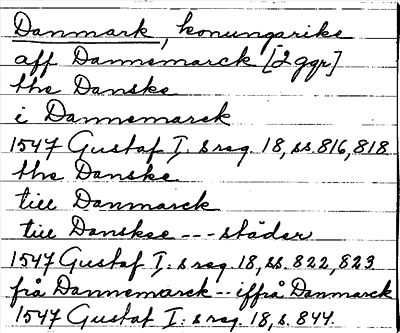 Danmark, konungarike
aff Dannemarck [2 ggr]
the Danske
i Dannemarck
1547 Gustaf I:s reg. 18, ss. 816, 818
the Danske
till Danmarck
till Danskee --- städer
1547 Gustaf I:s reg. 18, ss. 822, 823
frå Dannemarck -- iffrå Danmarck
1547 Gustaf I:s reg. 18, s. 844.